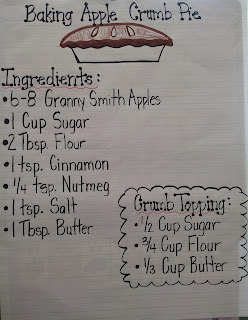 Baking Apple Crumb Pie
Ingredients:
•6-8 Granny Smith Apples
•1 Cup Sugar
•2 Tbsp. Flour
•1 tsp. Cinnamon
•1/4 tsp. Nutmeg
•1 tsp. Salt
•1 Tbsp. Butter
Crumb Topping:
•1/2 Cup Sugar
•3/4 Cup Flour
•1/3 Cup Butter